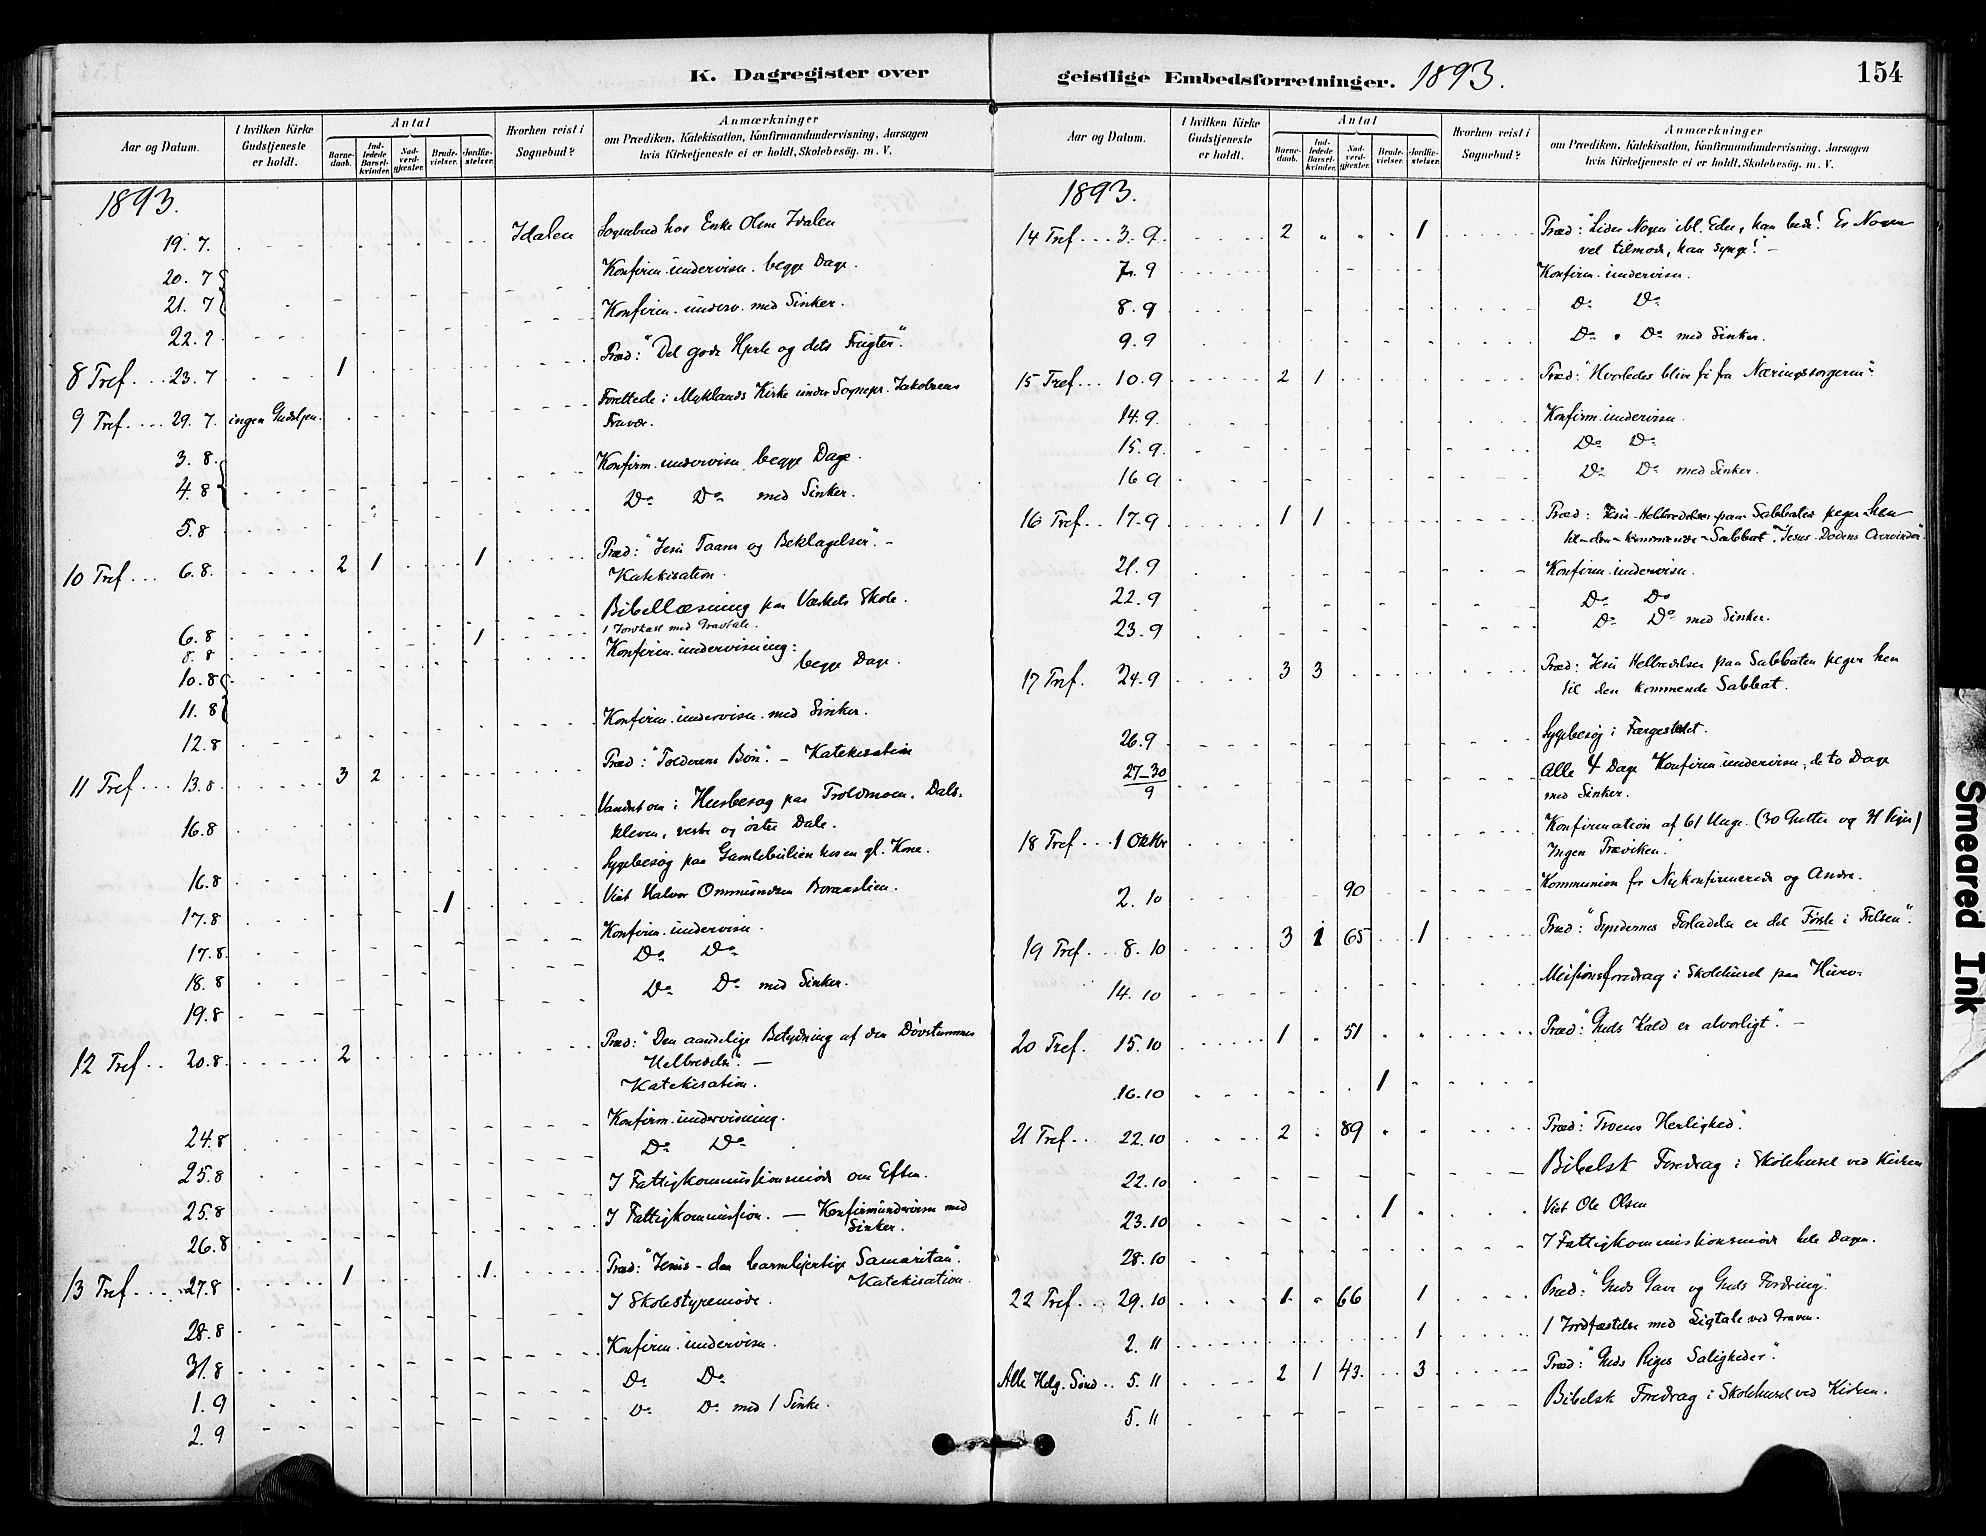 K. Dagregister over
Aar og Datum.
I hvilken Kirke Gudstjeneste er holdt.
Antal
Barnedaab.
Indledede Barselkvinder.
Nadverdgjester.
Brudevielser.
Jordfæstelser.
Hvorhen reist i Sognebud?
Anmærkninger
om Prædiken, Katekisation, Konfirmandundervisning, Aarsagen
hvis Kirketjeneste ei er holdt, Skolebesøg. m. V.
1893.
19. 7. Idalen Sognebud hos Enke Idalen
20. 7
21. 7 Konfirm. undervisn. begge Dage.
22. 7 Konfirm. underv. med Sinker.
8 Tref. 23. 7 1 Præd: "Det gode Hjerte og dets Frugter".
9 Tref. 29. 7. ingen Gudstjen. Forrettede i Myklands Kirke under Sognepr. Jakobsens
Fravær.
3. 8.
4. 8 Konfirm. undervisn. begge Dage.
5. 8 Do Do med Sinker.
10 Tref 6. 8. 2 1 1 Præd: "Jesu Taarer og Beklagelser". -
Katekisation.
6. 8 Bibellæsning paa Skole.
8. 8 1 1 Jordkast med Gravtale.
10. 8
11. 8 Konfirm. undervisning: begge Dage.
12. 8 Konfirm. undervisn. med Sinker.
11 Tref 13. 8 3 2 Præd: "Tolderens Bøn". - Katekisation
16. 8 Vandret om i Husbesøg paa Dals-
kleven, vestre og østre Dale.
16. 8 Sygebesøg paa hos en gl. Kone.
17. 8 1 Viet Halvor Ommundsen
17. 8. Konfirm. undervisn.
18. 8 Do Do
19. 8 Do Do med Sinker.
12 Tref 20. 8. 2 Præd: "Den aandelige Betydning af den Døvstummes
Helbredelse". -
Katekisation.
24. 8 Konfirm. undervisning.
25. 8 Do Do
25. 8 I Fattigkommissionsmøde om Eften.
26. 8 I Fattigkommission. - Konfirmundervisn med
Sinker.
13 Tref. 27. 8 1 1. Præd: "Jesus - den barmhjertige Samaritan".
Katekisation.
28. 8 I Skolestyremøde.
31. 8 Konfirm. undervisn.
1. 9 Do Do
2. 9 Do Do med 1 Sinke.
geistlige Embedsforretninger. 1893. 154
Aar og Datum.
I hvilken Kirke Gudstjeneste er holdt.
Antal
Barnedaab.
Indledede Barselkvinder.
Nadverdgjester.
Brudevielser.
Jordfæstelser.
Hvorhen reist i Sognebud?
Anmærkninger
om Prædiken, Katekisation, Konfirmandundervisning, Aarsagen
hvis Kirketjeneste ei er holdt, Skolebesøg. m. V.
1893.
14 Tref 3. 9. 2 1 Præd: "Lider Nogen ibl. Eder, han bede! Er Nogen
vel tilmode, han synge!" -
7. 9 Konfirm. undervisn.
8. 9 Do Do
9. 9 Do Do med Sinker.
15 Tref 10. 9 2 1 Præd: "Hvorledes blive fri fra Næringssorgerne".
14. 9. Konfirm. undervisn.
15. 9 Do Do
16 9 Do Do med Sinker.
16 Tref. 17. 9 1 1 Præd: Jesu Helbredelser paa Sabbaten peger hen
til den kommende Sabbat. "Jesus Dødens Overvinder"
21. 9 Konfirm. undervisn.
22. 9 Do Do
23. 9 Do Do med Sinker.
17 Tref. 24. 9 3 3 Præd: Jesu Helbredelser paa Sabbaten peger hen
til den kommende Sabbat.
26. 9 Sygebesøg i
27-30
9 Alle 4 Dage Konfirm. undervisn., de to Dage
med Sinker.
18 Tref 1 Oktbr Konfirmation af 61 Unge. (30 Gutter og 31 Piger)
Ingen
2. 10 90 Kommunion for Nykonfirmerede og Andre.
19 Tref 8. 10 3 1 65 1 Præd: "Syndernes Forladelse er det Første i Frelsen".
14. 10 Missionsforedrag i Skolehuset paa
20 Tref. 15. 10 1 51 Præd: "Guds Kald er alvorligt". -
16. 10 1
21 Tref. 22. 10 2 89 Præd: "Troens Herlighed".
22. 10 Bibelsk Foredrag i Skolehuset ved Kirken
23. 10 1 Viet Ole Olsen
28. 10 I Fattigkommissionsmøde hele Dagen.
22 Tref. 29. 10 1 66 1 Præd: "Guds Gave og Guds Fordring".
2. 11 1 1 Jordfæstelse med Ligtale ved Graven.
Alle Helg. Sønd 5. 11 2 1 43 3 Præd: "Guds Riges Saligheder".
5. 11 Bibelsk Foredrag i Skolehuset ved Kirken.
Smeared Ink